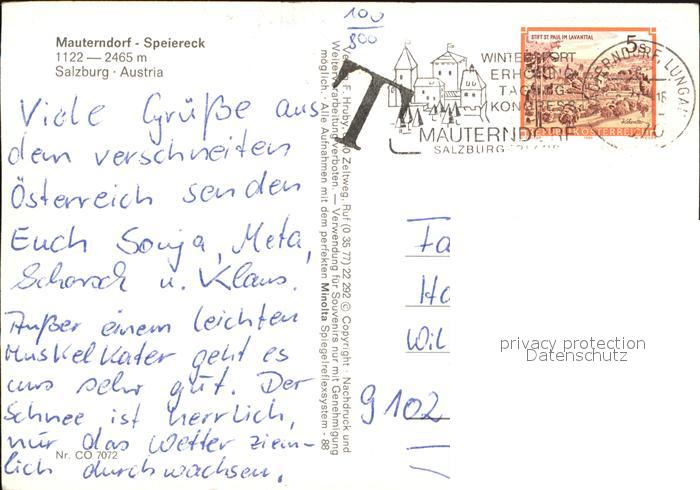 Mauterndorf - Speiereck
1122 — 2465 m
Salzburg · Austria
Viele Grüße aus
dem verschneiten
Österreich senden
Euch Sonja, Meta,
Schorsch u. Klaus.
Außer einem leichten
Muskelkater geht es
uns sehr gut. Der
Schnee ist herrlich,
nur das Wetter ziem-
lich durchwachsen.
Nr. CO 7072
F. Hruby, Zeltweg, Ruf (0 35 77) 22 292 © Copyright · Nachdruck und
Weiterverarbeitung verboten. — Verwendung für Souvenirs nur mit Genehmigung
möglich. - Alle Aufnahmen mit dem perfekten Minolta Spiegelreflexsystem - 88
100
800
T
WINTERSPORT
ERHOLUNG
TAGUNG
KONGRESS
MAUTERNDORF
SALZBURG
STIFT ST. PAUL IM LAVANTTAL
5s
REPUBLIK ÖSTERREICH
MAUTERNDORF LUNGAU
Fa
Ha
Wil
9102
privacy protection
Datenschutz